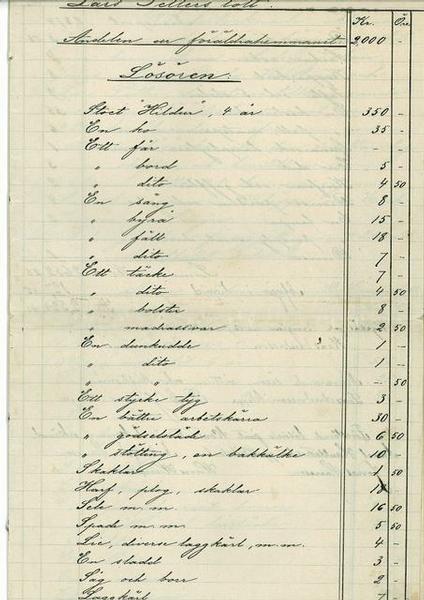 Lars Pellers lott
Kr. Öre
Andelen ur föräldrahemmanet 2,000 -
Lösören.
Stoet "Hildur", 4 år 350 -
En ko 35 -
Ett får - -
" bord 5 -
" dito 4 50
En säng 8 -
" byrå 15 -
" fäll 18 -
" dito 7 -
Ett täcke 7 -
" dito 4 50
" bolster 8 -
" madrassvar 2 50
En dunkudde 1 -
" dito 1 -
" " - 50
Ett stycke tyg 3 -
En bättre arbetskärra 30 -
" gödselsläd 6 50
" stötting, en bakkälke 10 -
Skaklar 1 50
Harf, plog, skaklar
Sele m.m. 16 50
Spade m.m. 5 50
Lie, diverse laggkärl, m.m. 4 -
En sladd 3 -
Såg och borr 2 -
Laggkärl 7 -